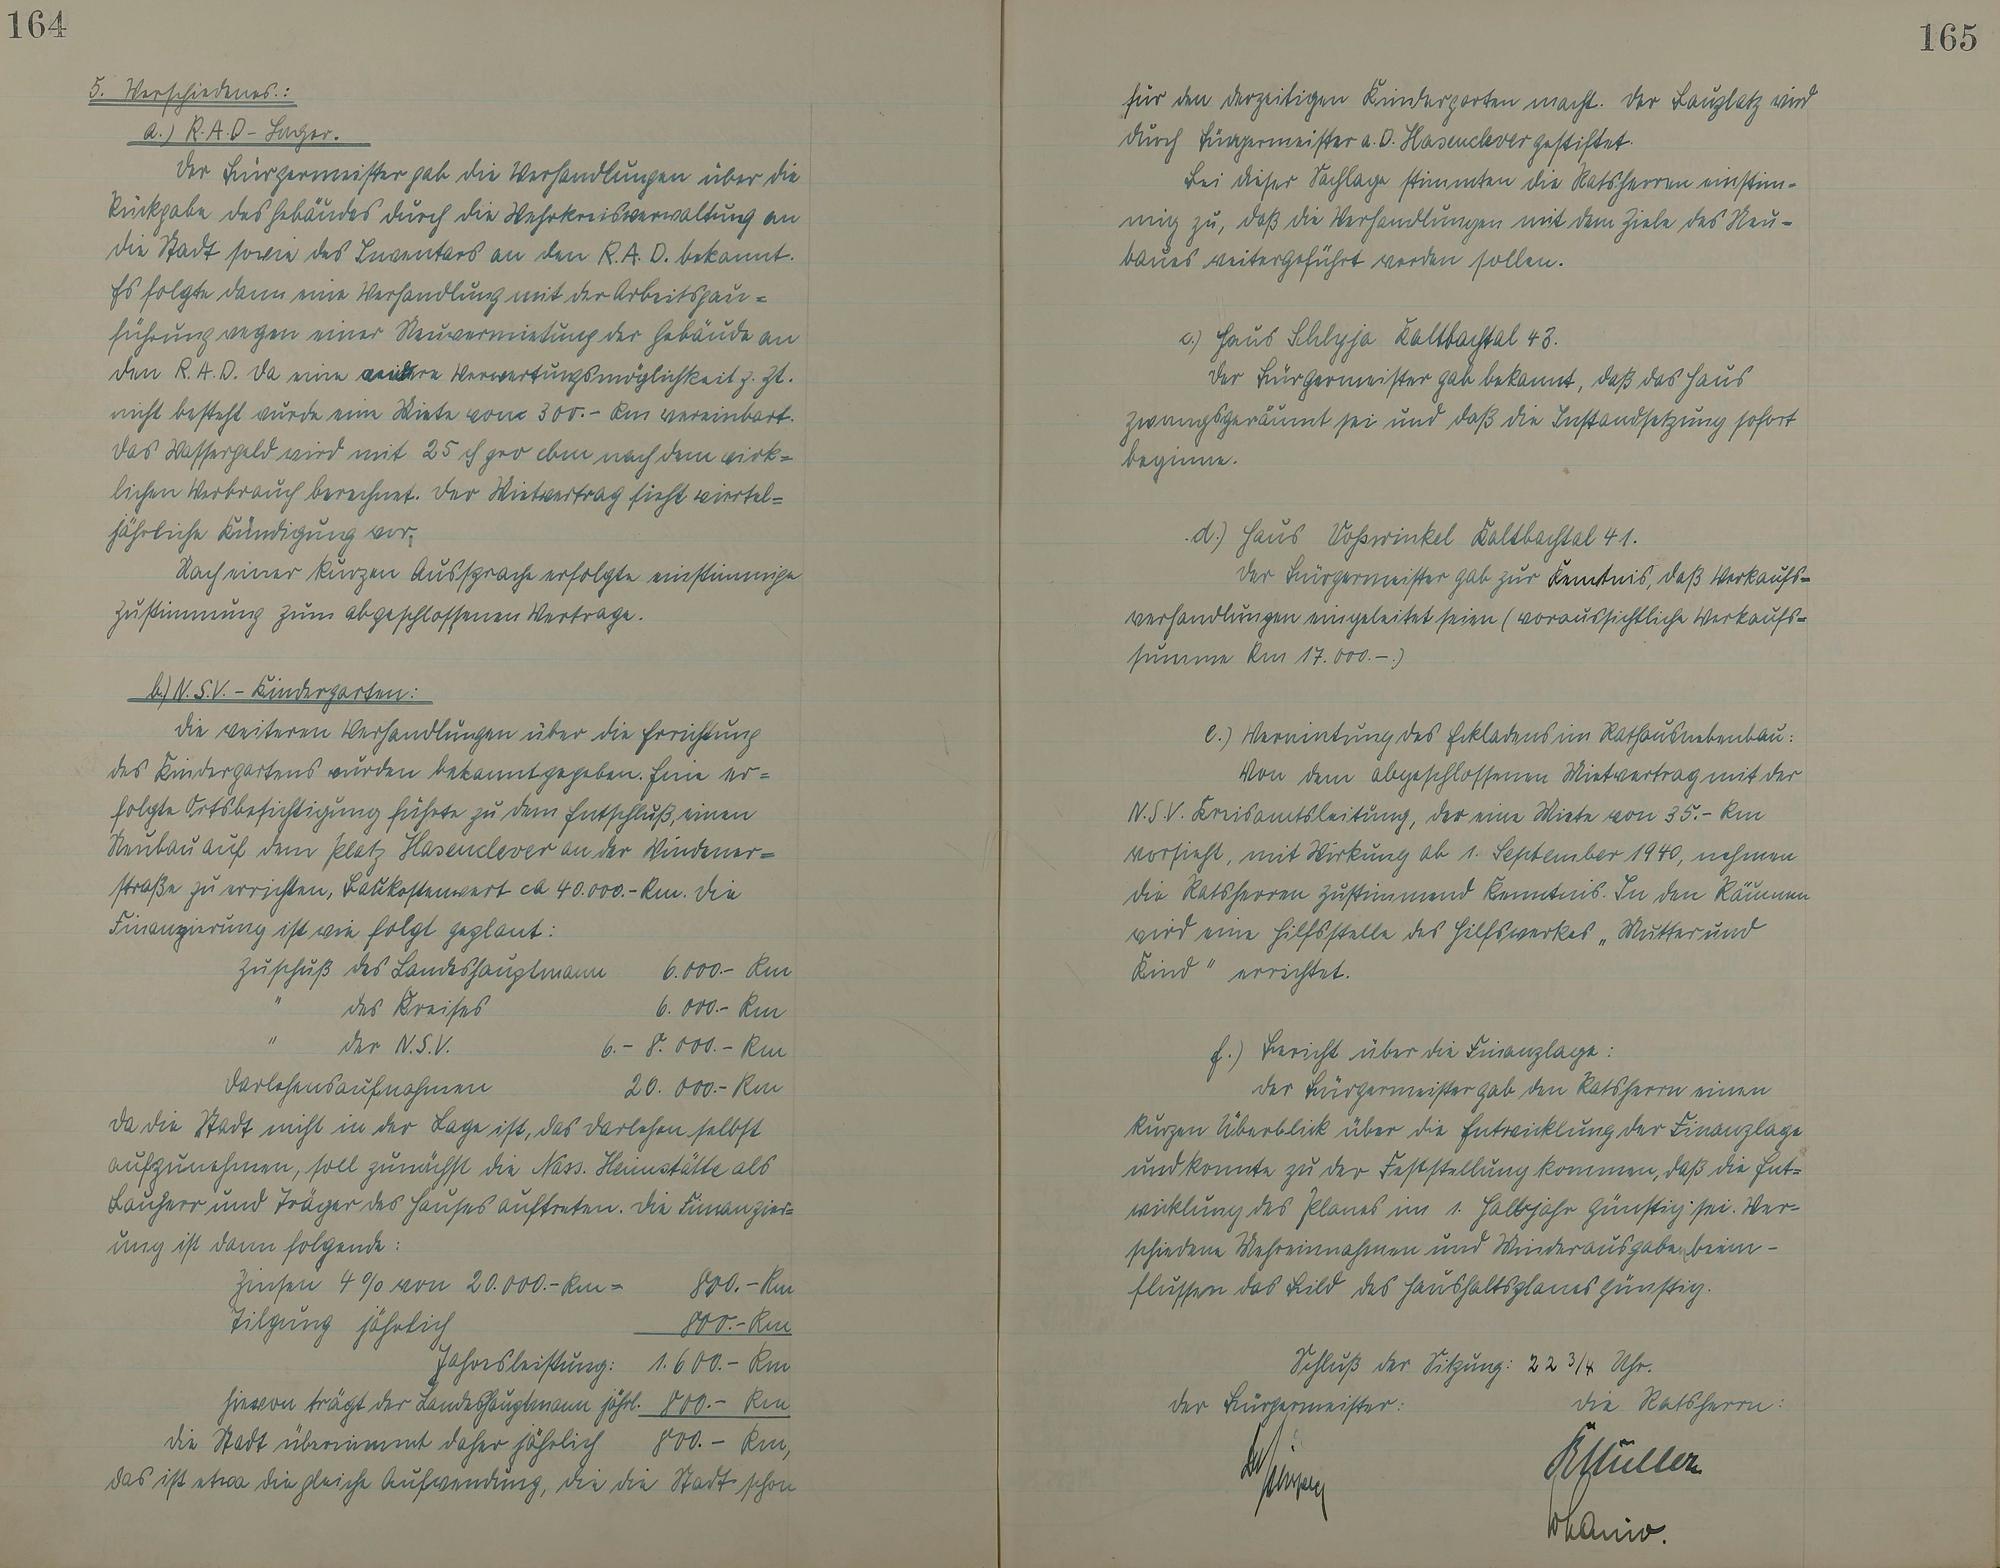 164
5. Verschiedenes.:
a.) R.A.D-Lager.
Der Bürgermeister gab die Verhandlungen über die
Rückgabe des Gebäudes durch die Wehrkreisverwaltung an
die Stadt sowie des Inventars an den R.A.D. bekannt.
Es folgte dann eine Verhandlung mit der Arbeitsgau=
führung wegen einer Neuvermietung der Gebäude an
den R.A.D. Da eine andere Verwertungsmöglichkeit z. Zt.
nicht besteht wurde eine Miete von 300.- Rm vereinbart.
Das Wassergeld wird mit 25 ₰ pro cbm nach dem wirk=
lichen Verbrauch berechnet. Der Mietvertrag sieht viertel=
jährliche Kündigung vor.
Nach einer kurzen Aussprache erfolgte einstimmige
Zustimmung zum abgeschlossenen Vertrage.
b) N.S.V. - Kindergarten:
Die weiteren Verhandlungen über die Errichtung
des Kindergartens wurden bekanntgegeben. Eine er=
folgte Ortsbesichtigung führte zu dem Entschluß, einen
Neubau auf dem Platz Hasenclever an der Windener=
straße zu errichten, Baukostenwert ca 40.000.- Rm. Die
Finanzierung ist wie folgt geplant:
Zuschuß des Landeshauptmann 6.000.- Rm
" des Kreises 6.000.- Rm
" der N.S.V. 6.- 8.000.- Rm
Darlehensaufnahmen 20.000.- Rm
Da die Stadt nicht in der Lage ist, das Darlehen selbst
aufzunehmen, soll zunächst die Nass. Heimstätte als
Bauherr und Träger des Hauses auftreten. Die Finanzier=
ung ist dann folgende:
Zinsen 4 % von 20.000.- Rm = 800.- Rm
Tilgung jährlich 800.- Rm
Jahresleistung: 1.600.- Rm
hiervon trägt der Landeshauptmann jährl. 800.- Rm
die Stadt übernimmt daher jährlich 800.- Rm,
das ist etwa die gleiche Aufwendung, die die Stadt schon
165
für den derzeitigen Kindergarten macht. Der Bauplatz wird
durch Bürgermeister a.D. Hasenclever gestiftet.
Bei dieser Sachlage stimmten die Ratsherren einstim-
mig zu, daß die Verhandlungen mit dem Ziele des Neu-
baues weitergeführt werden sollen.
c.) Haus Schlyja Kaltbachtal 43.
Der Bürgermeister gab bekannt, daß das Haus
zwangsgeräumt sei und daß die Instandsetzung sofort
beginne.
d.) Haus Voßwinkel Kaltbachtal 41.
Der Bürgermeister gab zur Kenntnis, daß Verkaufs=
verhandlungen eingeleitet seien (voraussichtliche Verkaufs=
summe Rm 17.000.-.)
e.) Vermietung des Eckladens im Rathausnebenbau:
Von dem abgeschlossenen Mietvertrag mit der
N.S.V. Kreisamtsleitung, der eine Miete von 35.- Rm
vorsieht, mit Wirkung ab 1. September 1940, nehmen
die Ratsherren zustimmend Kenntnis. In den Räumen
wird eine Hilfsstelle des Hilfswerkes „Mutter und
Kind" errichtet.
f.) Bericht über die Finanzlage:
Der Bürgermeister gab den Ratsherrn einen
kurzen Überblick über die Entwicklung der Finanzlage
und konnte zu der Feststellung kommen, daß die Ent=
wicklung des Planes im 1. Halbjahr günstig sei. Ver=
schiedene Mehreinnahmen und Minderausgaben beein-
flussen das Bild des Haushaltsplanes günstig.
Schluß der Sitzung: 22 3/4 Uhr.
Der Bürgermeister: Die Ratsherrn:
Müller